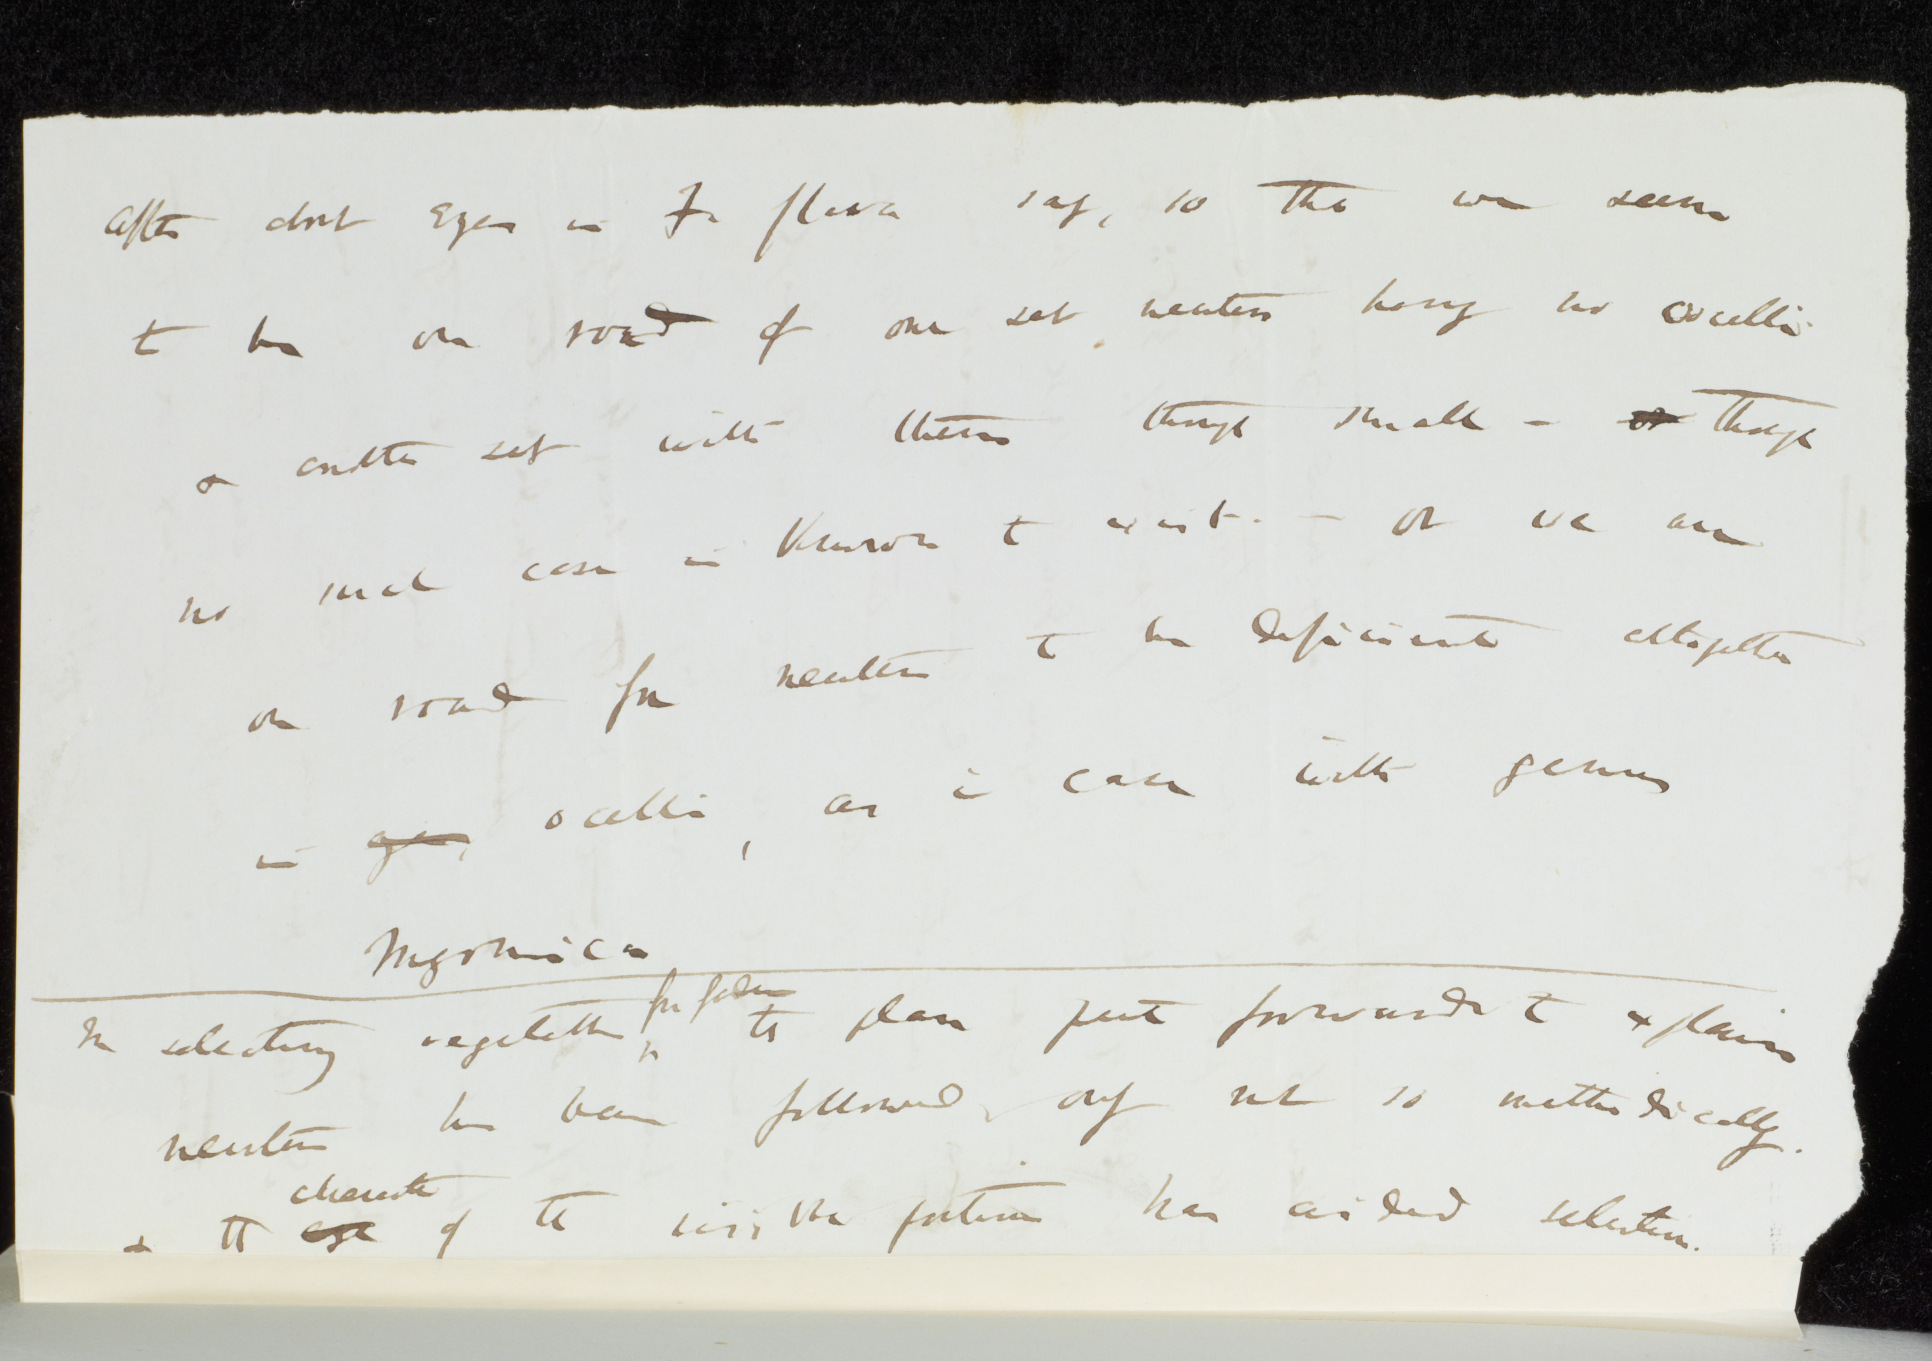 After about Eyes in F. flava say, so that we seem
to be on road of one set neuters having no ocelli
& another set with them though small — or though
no such case is known to exist. — or we are
on road for neuters to be deficient altogether
in ocelli, as is case with genus
Myrmica
In selecting vegetable for garden the plan put forward to explain
neuters has been followed, only not so methodically.
& the character of the visible portions has aided selection.